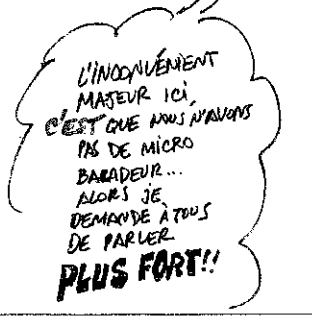 L'INCONVÉNIENT
MAJEUR ICI,
C'EST QUE NOUS N'AVONS
PAS DE MICRO
BARADEUR...
ALORS JE
DEMANDE À TOUS
DE PARLER
PLUS FORT!!